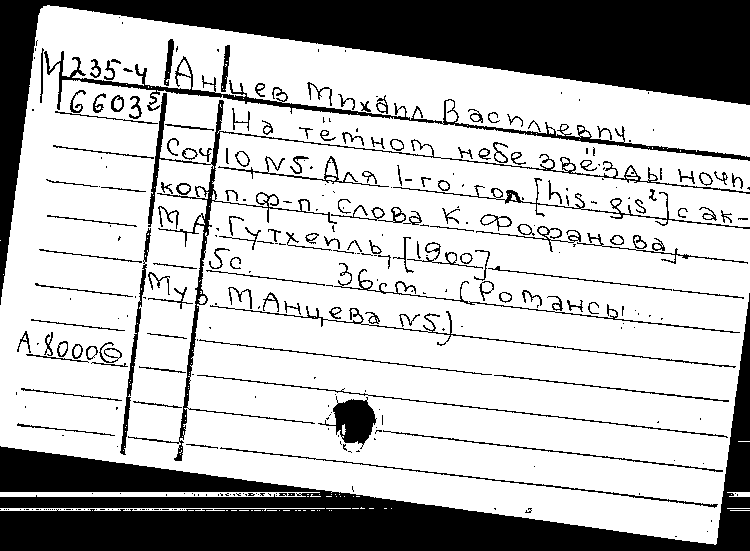 М 235-4 Анцев, Михаил Васильевич.
66035 На тёмном небе звёзды ночи.
Соч. 10, N5. Для 1-го гол. [his-gis²] с ак-
комп. ф-п., слова К. Фофанова,
М., А. Гутхейль, [1900].
5с. 36см. (Романсы...
Муз. М. Анцева N5.)
А. 8000